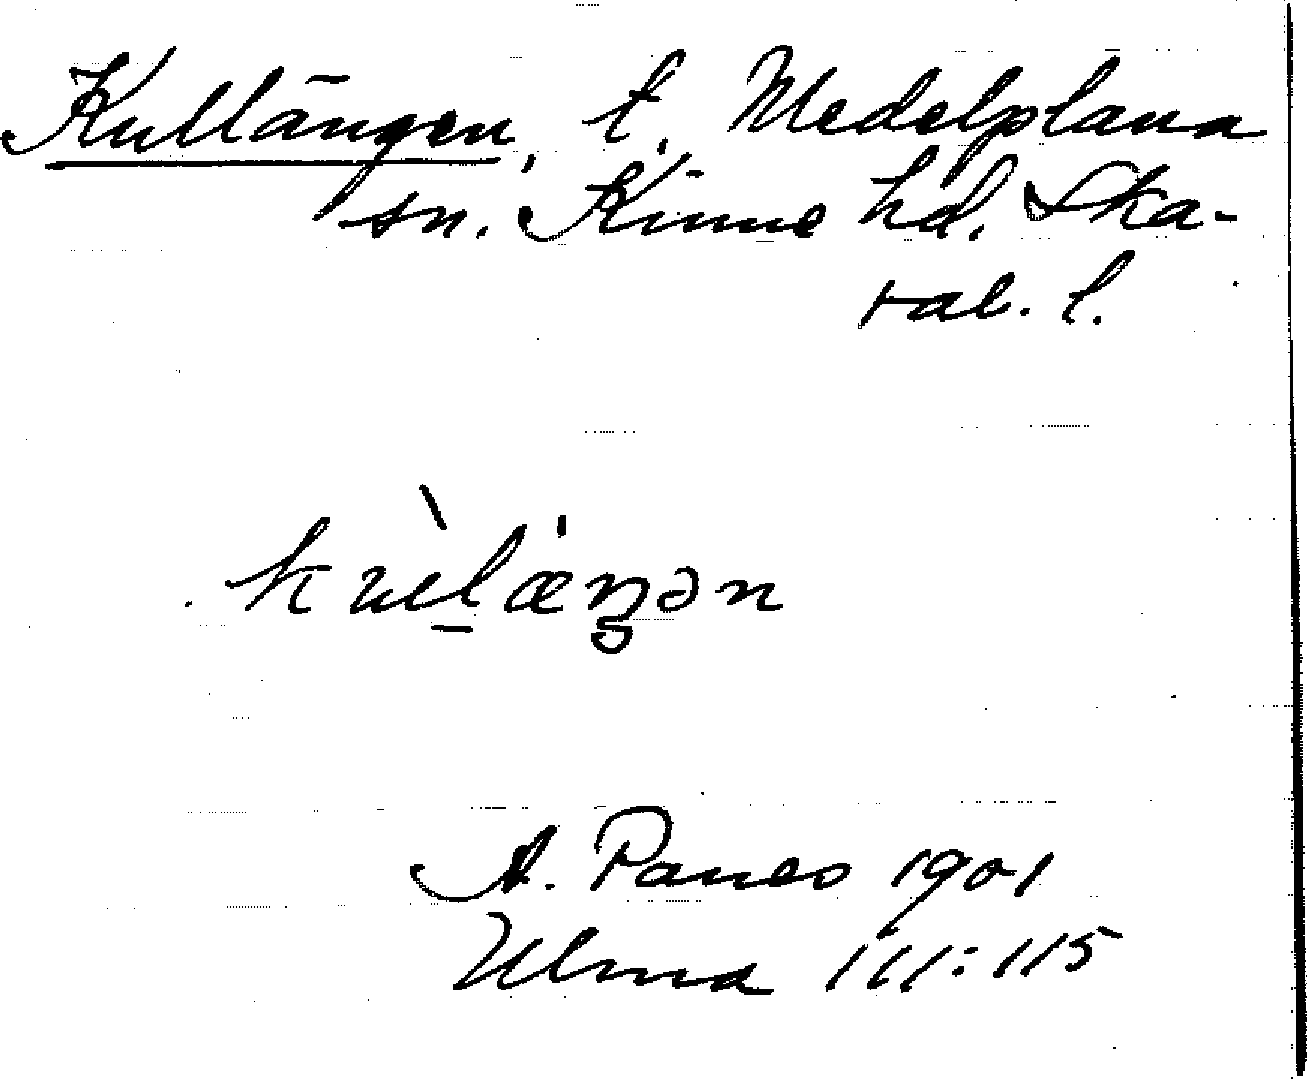 Kullängen, t. Medelplana
sn. Kinne hd. Ska-
rab. l.
kùl̠æŋən
A. Paneo 1901
Ulma 111:115